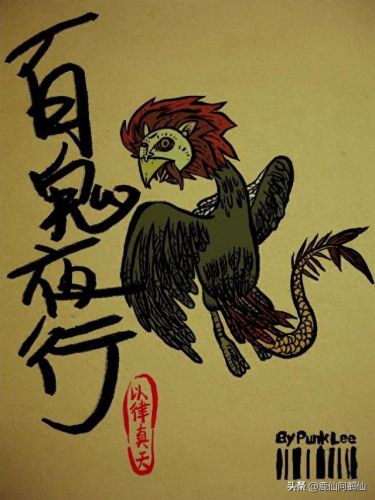 百鬼夜行
以律真天
By Punk Lee
头条 @鹿仙问鹤仙